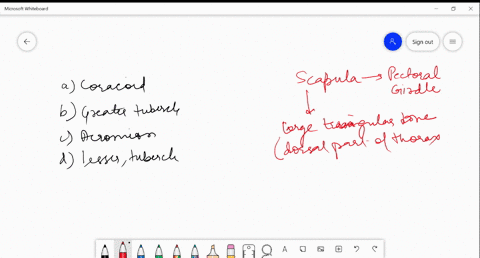 Microsoft Whiteboard
Sign out
a) Coracoid
b) Greater tubercle
c) Acromion
d) lesser, tubercle
Scapula → Pectoral
Girdle
Large triangular bone
(dorsal part of thorax